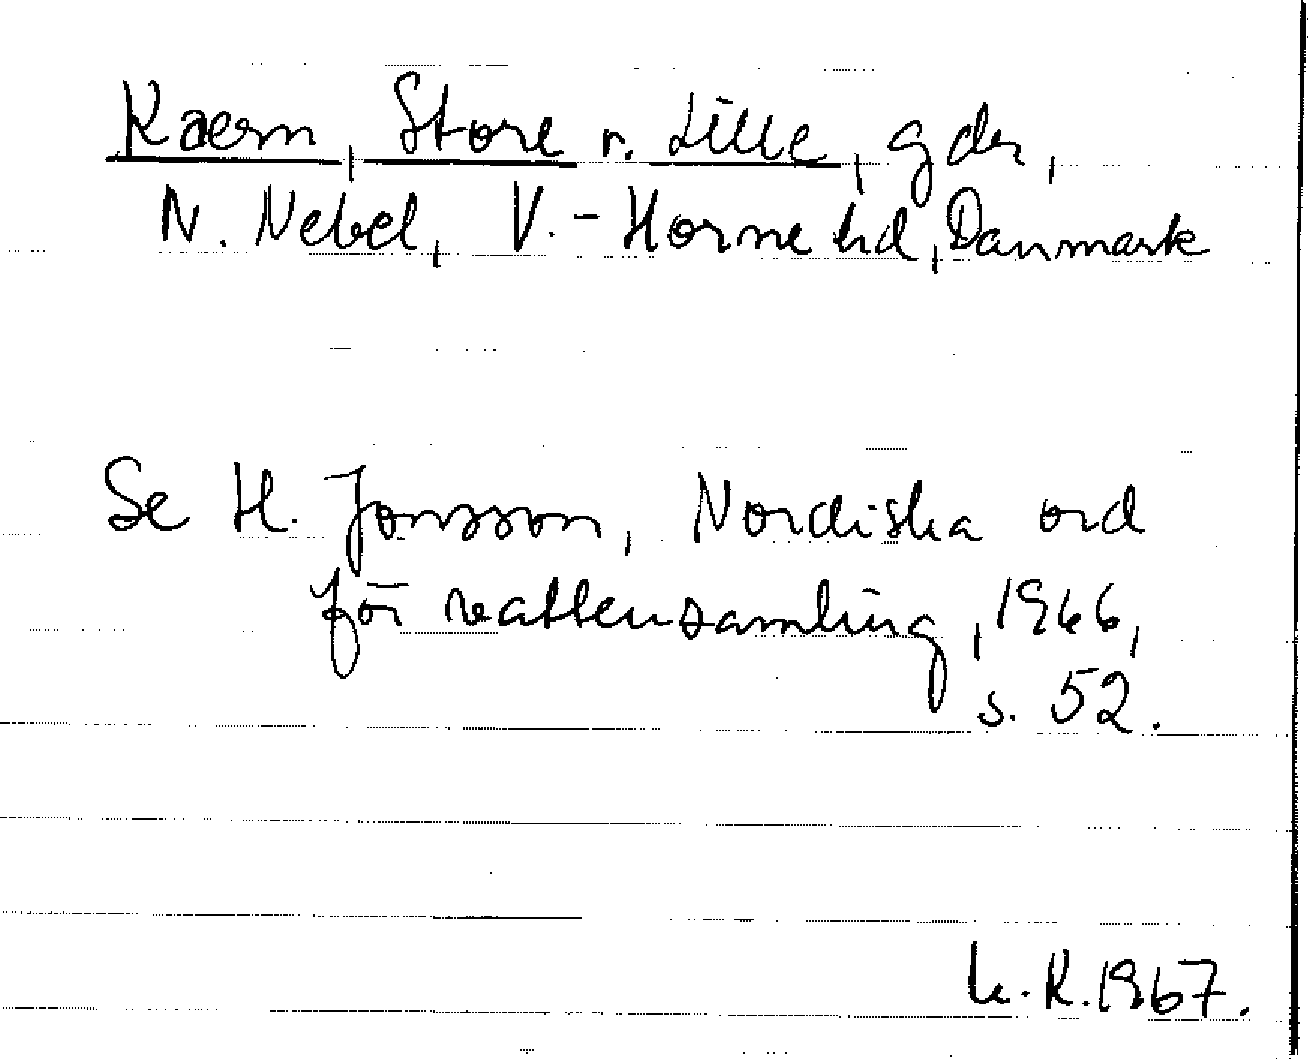 Kaern, Store r. Lille, gdr,
N. Nebel, V.-Horne hd, Danmark
Se H. Jonsson, Nordiska ord
för vattensamling, 1966,
s. 52.
L. R. 1967.